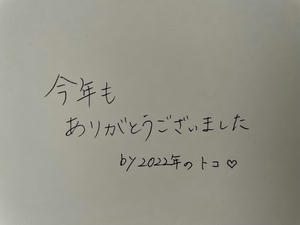 今年も
ありがとうございました
by 2022年のトコ♡